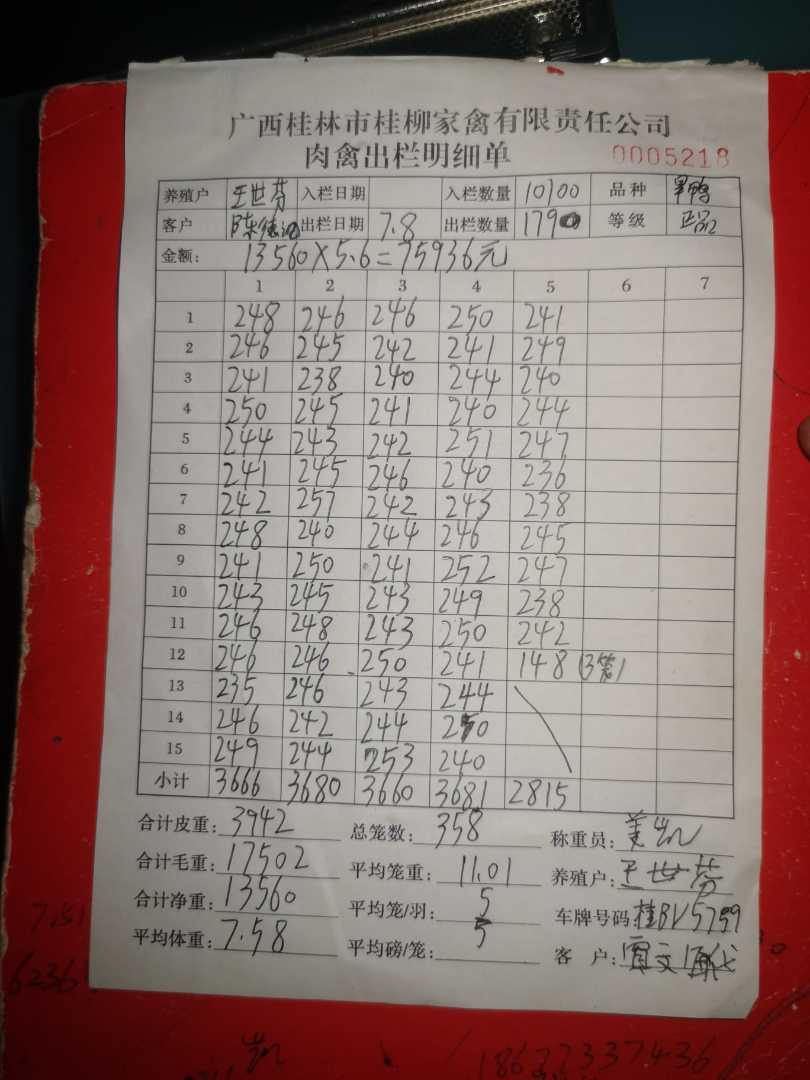 广西桂林市桂柳家禽有限责任公司
肉禽出栏明细单 0005218
养殖户 王世芬 入栏日期 入栏数量 10100 品种
客户 出栏日期 7.8 出栏数量 1790 等级 正品
金额: 13560×5.6=75936元
1 2 3 4 5 6 7
1 248 246 246 250 241
2 246 245 242 241 249
3 241 238 240 244 240
4 250 245 241 240 244
5 244 243 242 251 247
6 241 245 246 240 236
7 242 257 242 243 238
8 248 240 244 246 245
9 241 250 241 252 247
10 243 245 243 249 238
11 246 248 243 250 242
12 246 246 250 241 148 (3笼)
13 235 246 243 244
14 246 242 244 250
15 249 244 253 240
小计 3666 3680 3660 3681 2815
合计皮重: 3942 总笼数: 358 称重员:
合计毛重: 17502 平均笼重: 11.01 养殖户: 王世芬
合计净重: 13560 平均笼/羽: 5 车牌号码 桂BV5799
平均体重: 7.58 平均磅/笼: 5 客 户:
7.51
6236
18677337436